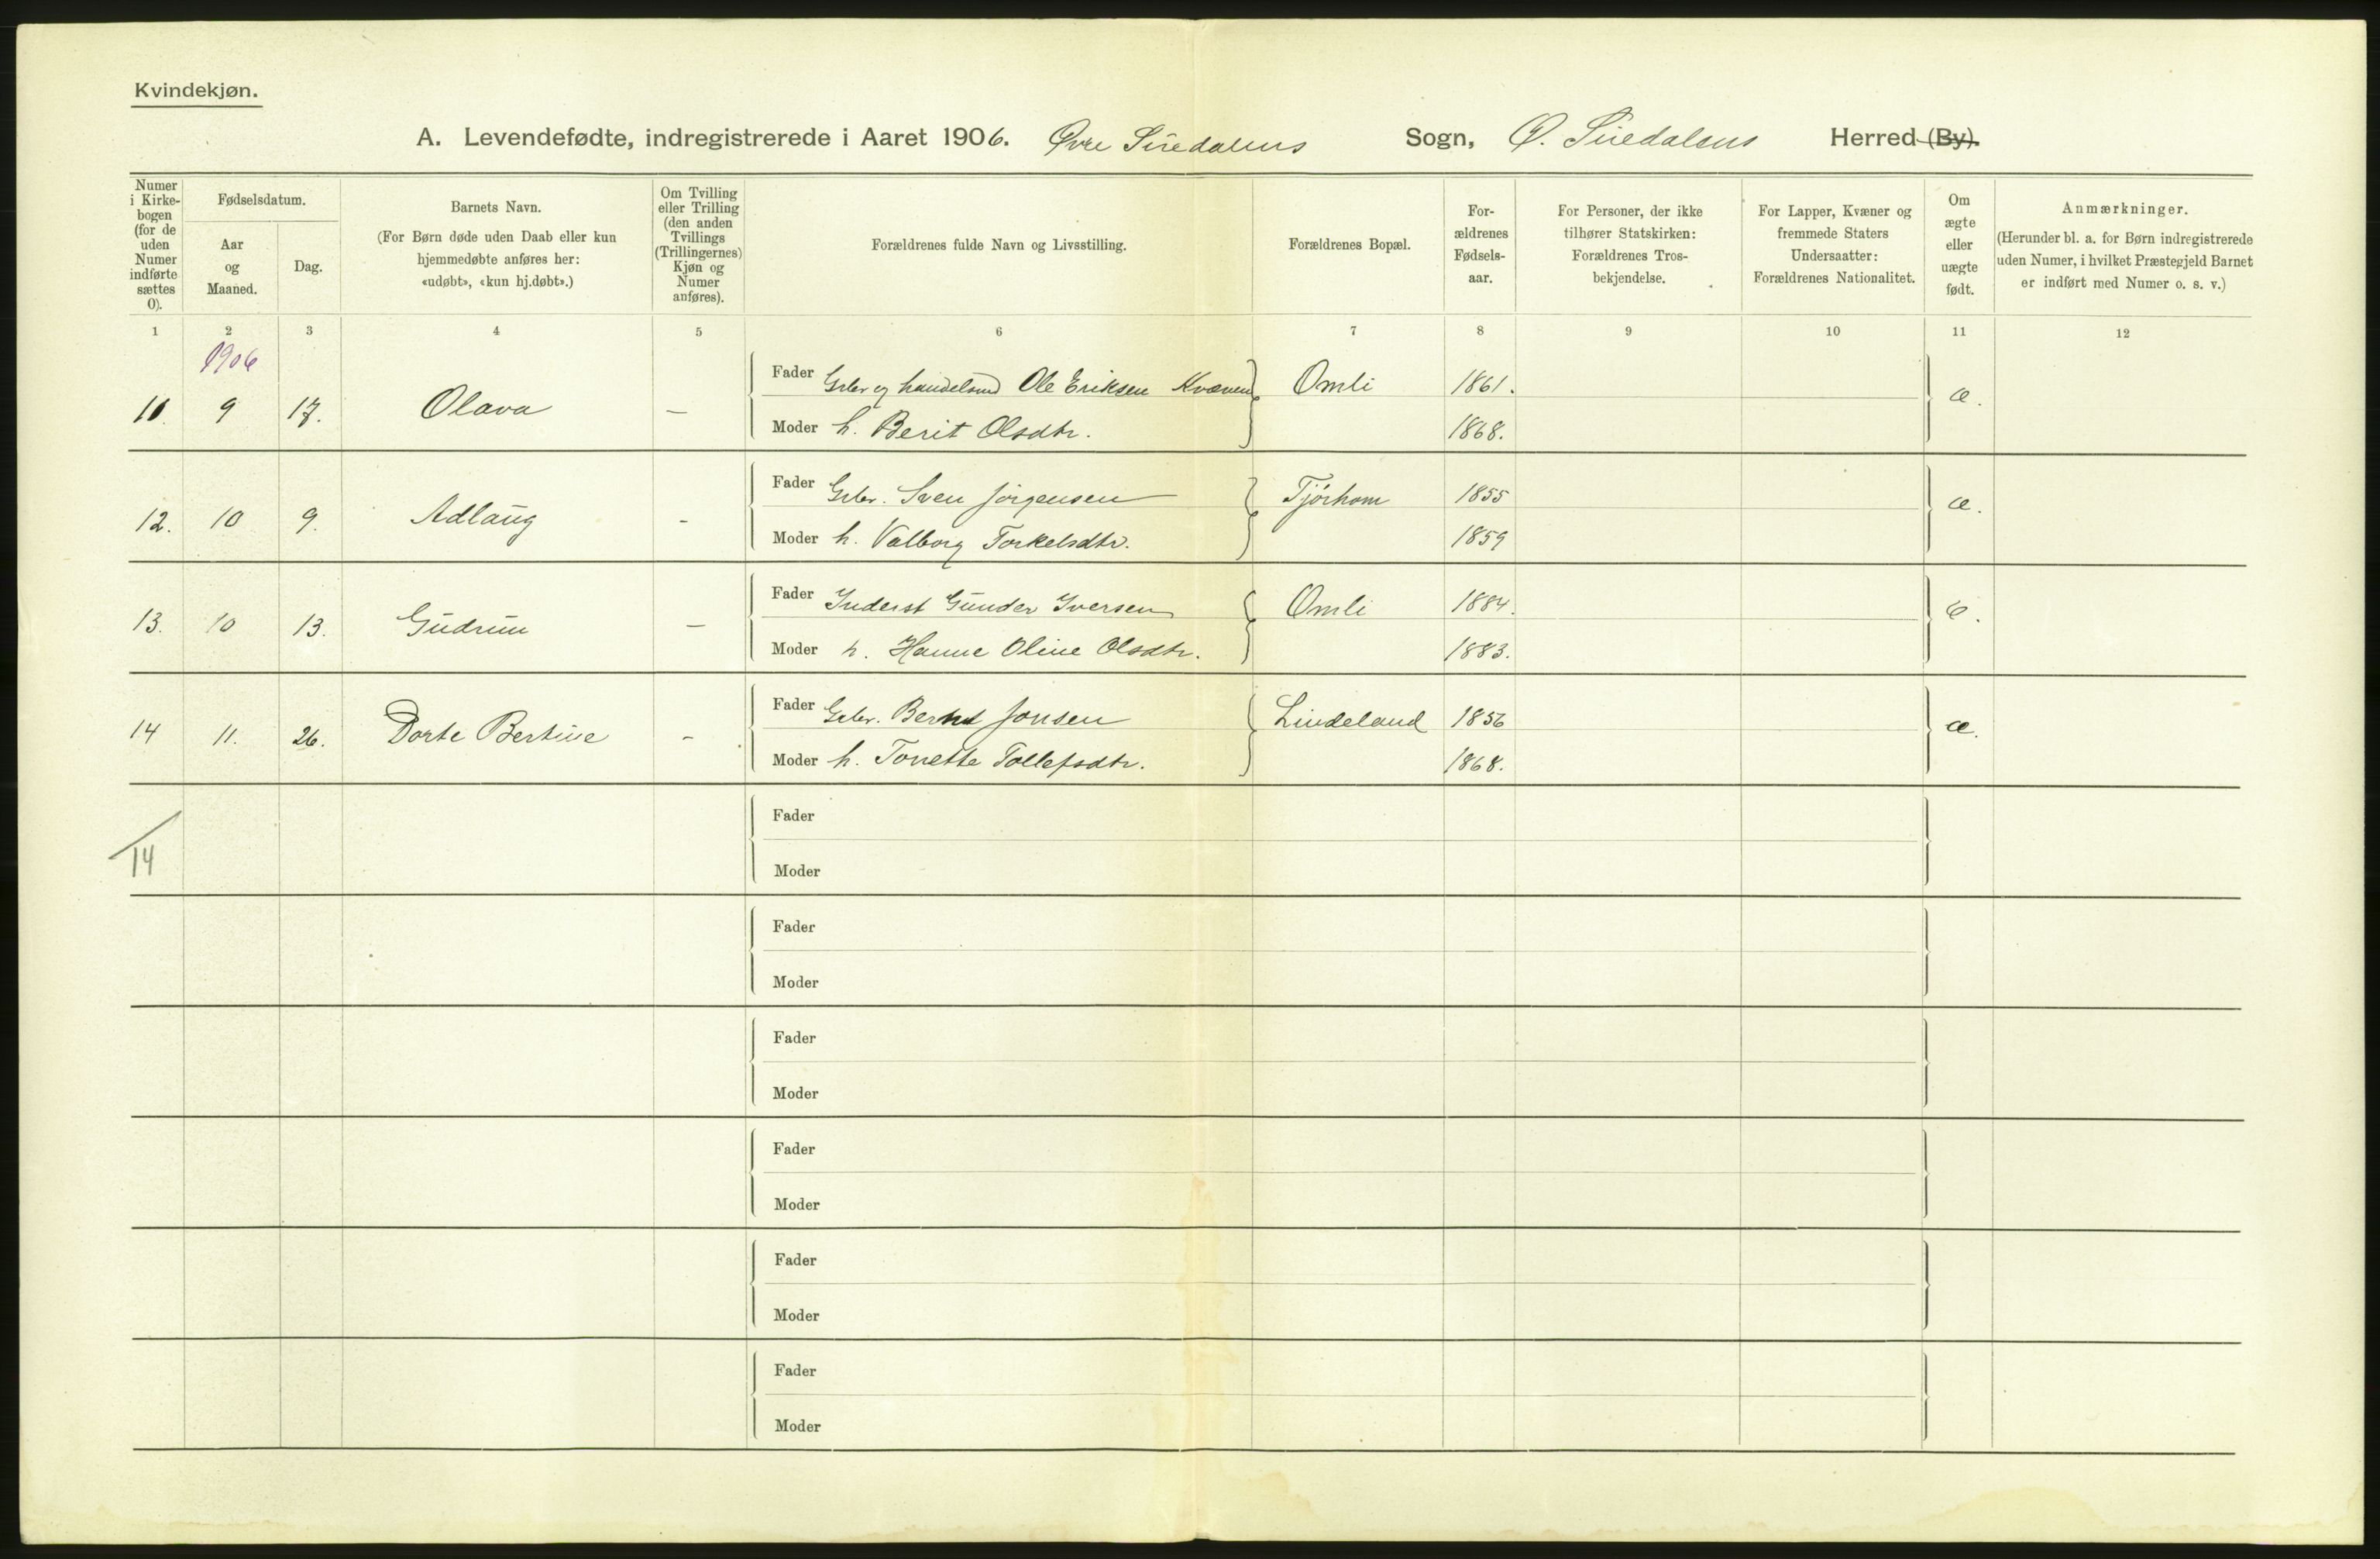 Kvindekjøn.
A. Levendefødte, indregistrerede i Aaret 1906. Øvre Siredalens Sogn, Ø. Siredalens Herred (By).
Numer i Kirke-bogen (for de uden Numer indførte sættes 0).
Fødselsdatum.
Aar og Maaned.
Dag.
Barnets Navn.
(For Børn døde uden Daab eller kun
hjemmedøbte anføres her:
«udøbt», «kun hj.døbt».)
Om Tvilling
eller Trilling
(den anden
Tvillings
(Trillingernes)
Kjøn og
Numer
anføres).
Forældrenes fulde Navn og Livsstilling.
Forældrenes Bopæl.
For-
ældrenes
Fødsels-
aar.
For Personer, der ikke
tilhører Statskirken:
Forældrenes Tros-
bekjendelse.
For Lapper, Kvæner og
fremmede Staters
Undersaatter:
Forældrenes Nationalitet.
Om
ægte
eller
uægte
født.
Anmærkninger.
(Herunder bl. a. for Børn indregistrerede
uden Numer, i hvilket Præstegjeld Barnet
er indført med Numer o. s. v.)
1 2 3 4 5 6 7 8 9 10 11 12
1906
Fader Gbr. og handelsmd Ole Eriksen Kvæven Omli 1861.
11. 9 17. Olava — æ.
Moder h. Berit Olsdtr. 1868.
Fader Gbr. Sven Jörgensen Tjörhom 1855
12. 10 9. Adlaug - æ.
Moder h. Valborg Torkelsdtr. 1859
Fader Inderst Gunder Iversen Omli 1884.
13. 10 13. Gudrun — æ.
Moder h. Hanne Oline Olsdtr. 1883.
Fader Gbr. Bernt Jonsen Lindeland 1856
14 11. 26. Dorte Bertine - æ.
Moder h. Tonette Tollefsdtr. 1868.
Fader
14
Moder
Fader
Moder
Fader
Moder
Fader
Moder
Fader
Moder
Fader
Moder